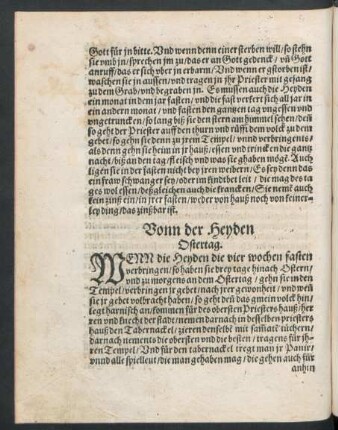 Gott für jn bitte. Vnd wenn denn einer sterben will/ so stehn
sie vmb jn/ sprechen jm zu/ das er an Gott gedenck/ vñ Gott
anruff/ das er sich vber jn erbarm/ Vnd wenn er gstorben ist/
waschen sie jn aussen/ vnd tragen jn jhr Priester mit gesang
zu dem Grab/ vnd begraben jn. Es müssen auch die Heyden
ein monat in dem jar fasten/ vnd die fast verkert sich all jar in
ein andern monat/ vnd fasten den gantzen tag vngessen vnd
vngetruncken/ so lang biß sie den stern am himmel sehen/ deñ
so geht der Priester auff den thurn vnd rüfft dem volck zu dem
gebet/ so gehn sie denn zu jrem Tempel/ vnnd verbringents/
als denn gehn sie heim in jr hauß/ essen vnd trincken die gantz
nacht/ biß an den tag/ fleisch vnd was sie ghaben mögẽ. Auch
ligen sie in der fasten nicht bey jren weibern/ Es sey denn das
ein fraw schwanger sey/ oder im kindbet leit/ die mag des ta
ges wol essen/ deßgleichen auch die krancken/ Sie nemẽ auch
kein zinß ein/ in jrer fasten/ weder von hauß noch von keiner-
ley ding/ das zinßbar ist.
Vonn der Heyden
Ostertag.
WENN die Heyden die vier wochen fasten
verbringen/ so haben sie drey tage hinach Ostern/
vnd zu morgens an dem Ostertag/ gehn sie in den
Tempel/ verbringen jr gebet/ nach jrer gewonheit/ vnd weñ
sie jr gebet volbracht haben/ so geht deñ das gmein volck hin/
legt harnisch an/ kommen für des obersten Priesters hauß/ her
ren vnd knecht der stadt/ nemen darnach in desselben priesters
hauß den Tabernackel/ zieren denselbẽ mit sammat tüchern/
darnach nements die obersten vnd die besten/ tragens für jh-
ren Tempel/ Vnd für den tabernackel tregt man jr Panir/
vnnd alle spielleut/ die man gehaben mag/ die gehen auch für
anhin